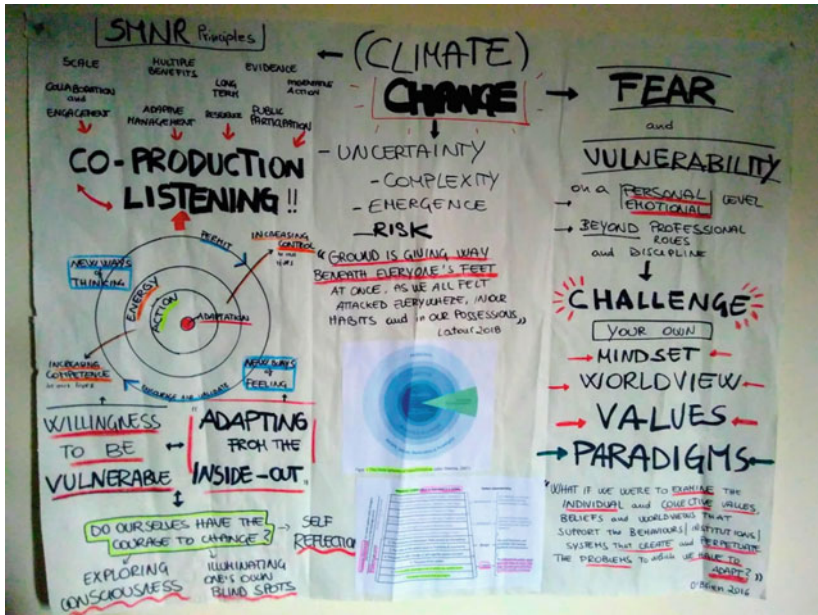 SMNR Principles
SCALE
MULTIPLE
BENEFITS
EVIDENCE
COLLABORATION
and
ENGAGEMENT
ADAPTIVE
MANAGEMENT
LONG
TERM
ACTION
PUBLIC
PARTICIPATION
CO-PRODUCTION
LISTENING!!
PERMIT
INCREASING
CONTROL
NEW WAYS
of
THINKING
ENERGY
ACTION
ADAPTATION
INCREASING
COMPETENCE
NEW WAYS
of
FEELING
WILLINGNESS
TO BE
VULNERABLE
"ADAPTING
FROM THE
INSIDE-OUT"
DO OURSELVES HAVE THE
COURAGE TO CHANGE?
SELF
REFLECTION
EXPLORING
CONSCIOUSNESS
ILLUMINATING
ONE'S OWN
BLIND SPOTS
(CLIMATE)
CHANGE
- UNCERTAINTY
- COMPLEXITY
- EMERGENCE
- RISK
"GROUND IS GIVING WAY
BENEATH EVERYONE'S FEET
AT ONCE. AS WE ALL FELT
ATTACKED EVERYWHERE, IN OUR
HABITS and in OUR POSSESSIONS"
Latour 2018
FEAR
and
VULNERABILITY
on a PERSONAL LEVEL
EMOTIONAL
BEYOND PROFESSIONAL
ROLES
and DISCIPLINE
CHALLENGE
YOUR OWN
MINDSET
WORLDVIEW
VALUES
PARADIGMS
"WHAT IF WE WERE TO EXAMINE THE
INDIVIDUAL and COLLECTIVE VALUES,
BELIEFS and WORLDVIEWS THAT
SUPPORT THE BEHAVIOURS/INSTITUTIONS/
SYSTEMS THAT CREATE and PERPETUATE
THE PROBLEMS TO which WE HAVE TO
ADAPT?"
O'Brien 2016